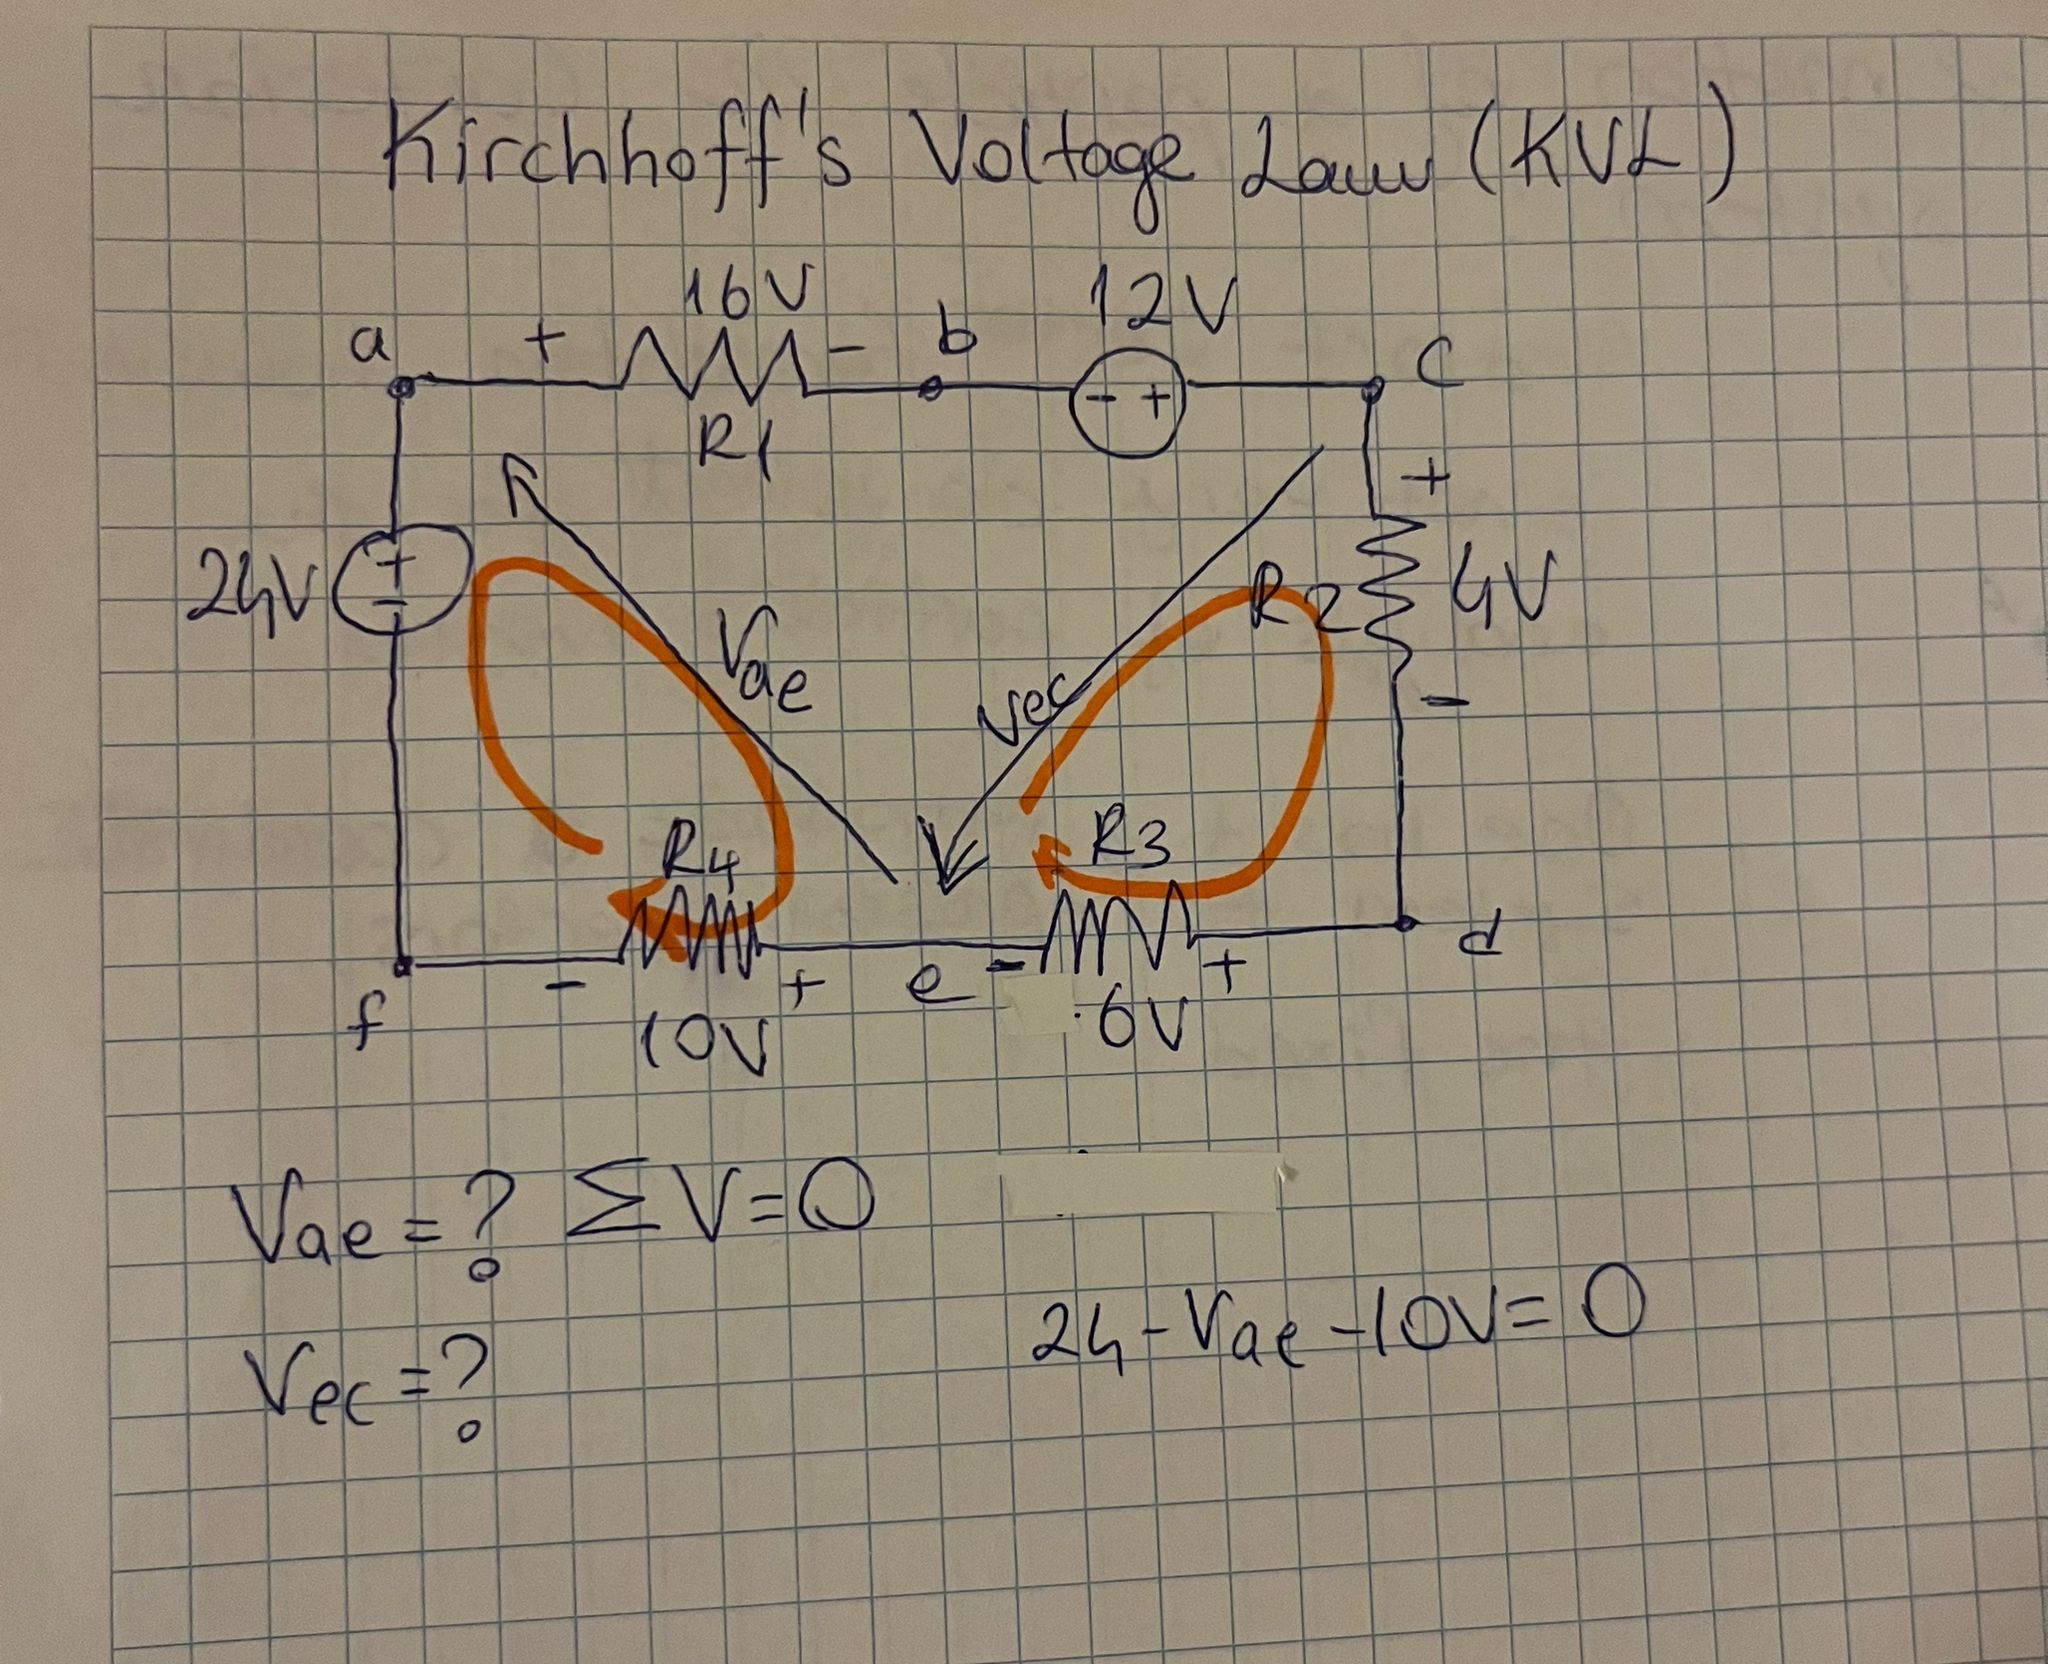 Kirchhoff's Voltage Law (KVL)
16V
12V
a
+
-
b
C
R1
- +
+
24V
+
-
R2
4V
Vae
Vec
-
R4
R3
d
f
-
+
e
-
+
10V
6V
Vae = ? ΣV=0
24-Vae-10V=0
Vec=?